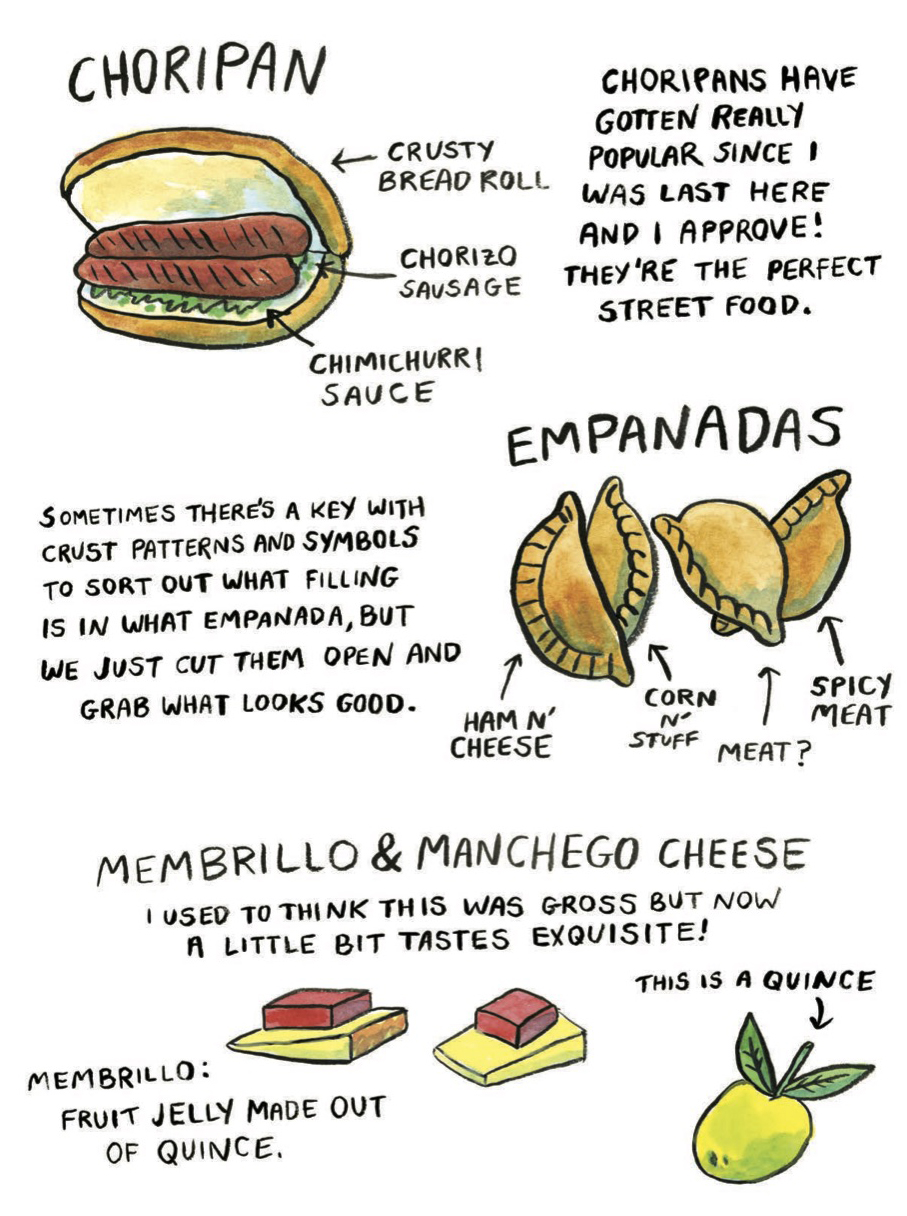 CHORIPAN
CRUSTY
BREAD ROLL
CHORIZO
SAUSAGE
CHIMICHURRI
SAUCE
CHORIPANS HAVE
GOTTEN REALLY
POPULAR SINCE I
WAS LAST HERE
AND I APPROVE!
THEY'RE THE PERFECT
STREET FOOD.
EMPANADAS
SOMETIMES THERE'S A KEY WITH
CRUST PATTERNS AND SYMBOLS
TO SORT OUT WHAT FILLING
IS IN WHAT EMPANADA, BUT
WE JUST CUT THEM OPEN AND
GRAB WHAT LOOKS GOOD.
HAM N'
CHEESE
CORN
N'
STUFF
MEAT?
SPICY
MEAT
MEMBRILLO & MANCHEGO CHEESE
I USED TO THINK THIS WAS GROSS BUT NOW
A LITTLE BIT TASTES EXQUISITE!
THIS IS A QUINCE
MEMBRILLO:
FRUIT JELLY MADE OUT
OF QUINCE.